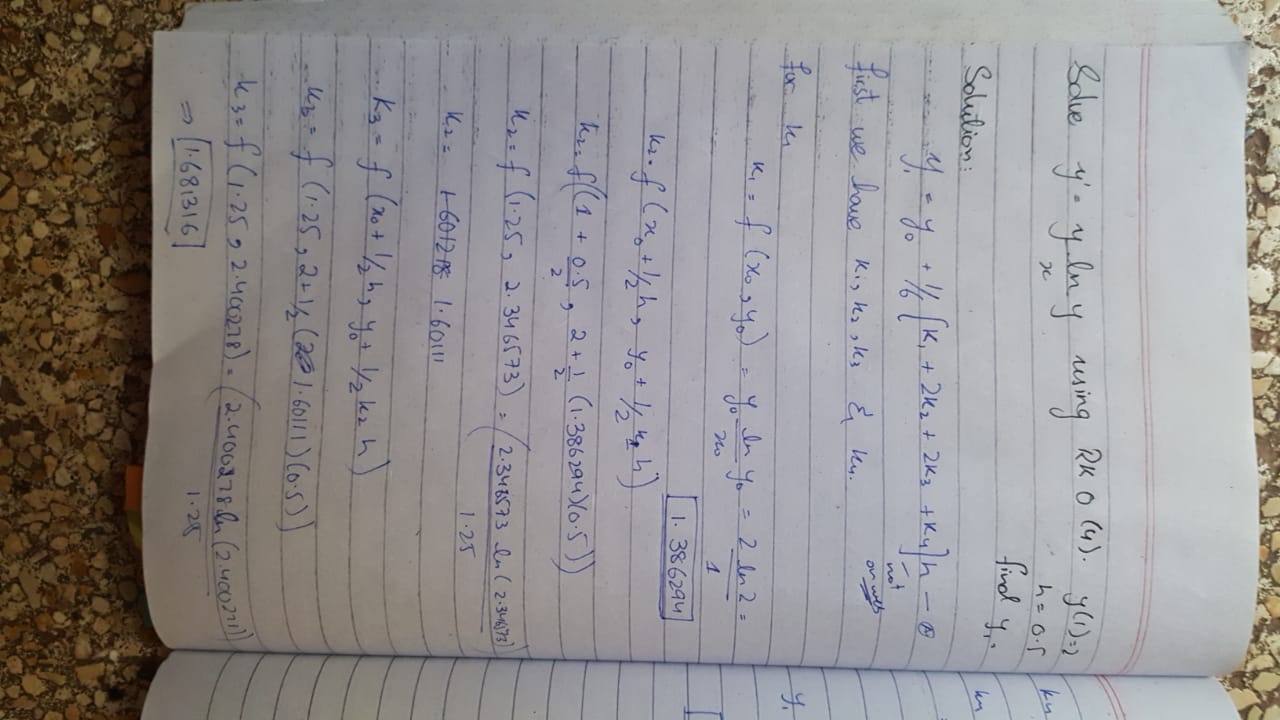 Solve y' = y ln y / x using RK O (4). y(1)=2
h = 0.5
find y₁.
Solution:
y₁ = y₀ + 1/6 [K₁ + 2K₂ + 2K₃ + K₄] h — Ⓐ
not
first we have K₁, K₂, K₃ & K₄.
for K₁
K₁ = f (x₀, y₀) = y₀ ln y₀ / x₀ = 2 ln 2 / 1 =
1.386294
K₂ = f (x₀ + 1/2 h, y₀ + 1/2 K₁ h)
K₂ = f((1 + 0.5/2, 2 + 1/2 (1.386294)(0.5))
K₂ = f (1.25, 2.346573) = (2.346573 ln (2.346573) / 1.25)
K₂ = 1.601218 1.60111
K₃ = f (x₀ + 1/2 h, y₀ + 1/2 K₂ h)
K₃ = f (1.25, 2 + 1/2 (1.60111)(0.5))
K₃ = f (1.25, 2.400278) = (2.400278 ln (2.400271) / 1.25)
⇒ 1.681316
K₄
K₄
y₁